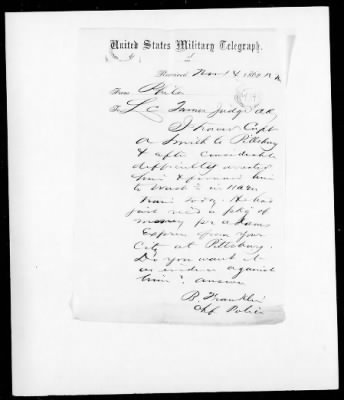 United States Military Telegraph.
Received Nov 4 186
From Phila
To L C Turner Judge Ad
Capt
Smith to Pittsburg
& after considerable
difficulty arrested
him & forward him
to Wash in 11 a m
train today. He had
just rec'd a pkg of
money per Adams
Express from your
City at Pittsburg.
Do you want it
as evidence against
him? answer
B. Franklin
Chf Police